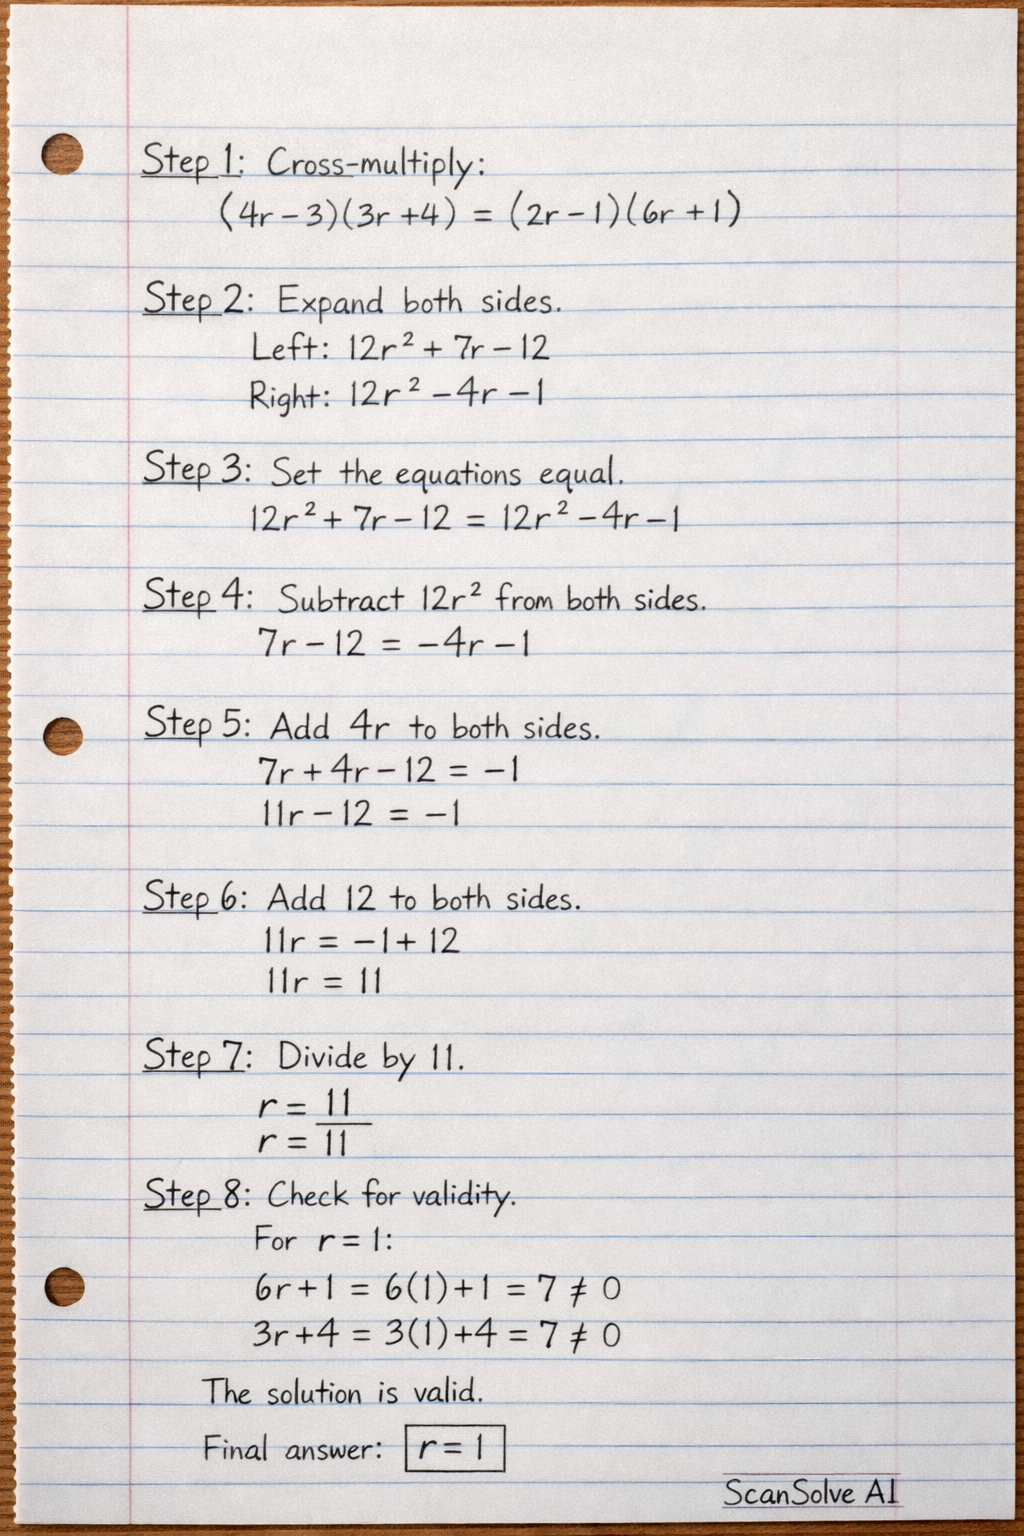 Step 1: Cross-multiply:
(4r – 3)(3r + 4) = (2r – 1)(6r + 1)
Step 2: Expand both sides.
Left: 12r² + 7r – 12
Right: 12r² – 4r – 1
Step 3: Set the equations equal.
12r² + 7r – 12 = 12r² – 4r – 1
Step 4: Subtract 12r² from both sides.
7r – 12 = –4r – 1
Step 5: Add 4r to both sides.
7r + 4r – 12 = –1
11r – 12 = –1
Step 6: Add 12 to both sides.
11r = –1 + 12
11r = 11
Step 7: Divide by 11.
r = 11
r = 11
Step 8: Check for validity.
For r = 1:
6r + 1 = 6(1) + 1 = 7 ≠ 0
3r + 4 = 3(1) + 4 = 7 ≠ 0
The solution is valid.
Final answer: r = 1
ScanSolve AI